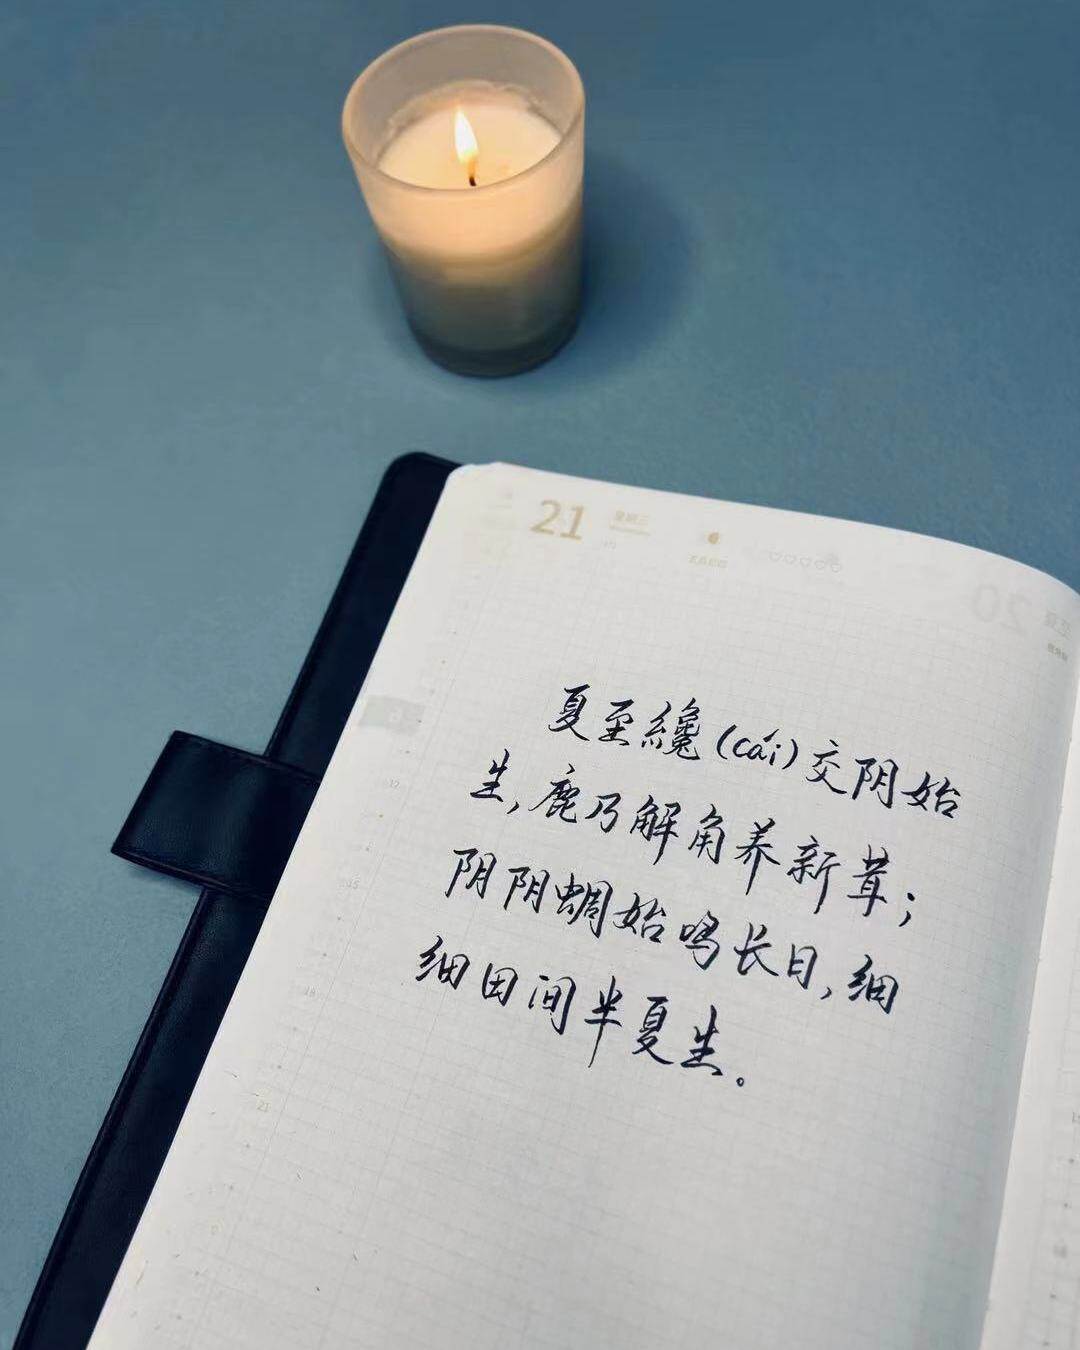 21 星期三
夏至纔(cái)交阴始
生,鹿乃解角养新茸;
阴阴蜩始鸣长日,细
细田间半夏生。
15
18
21